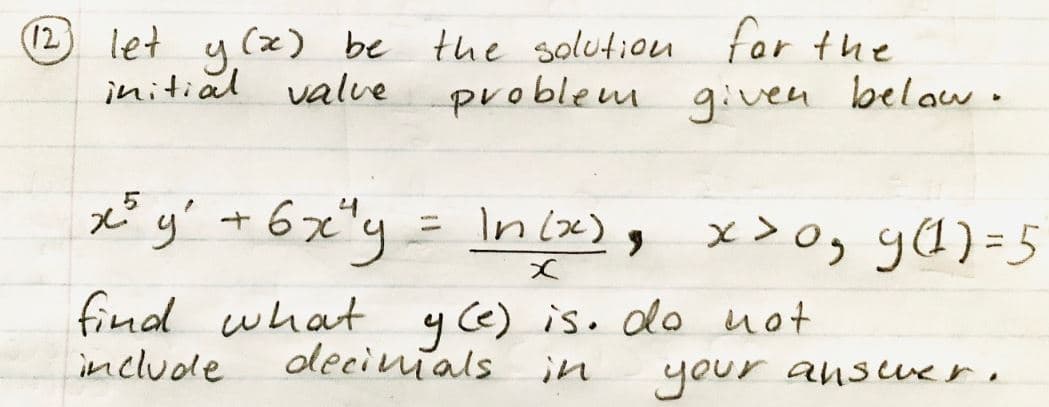 (12) let y(x) be the solution for the
initial value problem given below.
x⁵y' + 6x⁴y = ln(x)/x, x>0, y(1)=5
find what y(e) is. do not
include decimals in your answer.